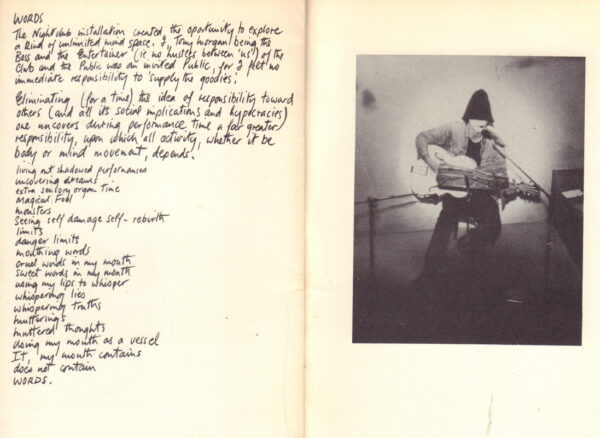 WORDS
The Nightclub installation created, the oportunity to explore
a kind of unlimited mind space. I, Tony Morgan, being the
Boss and the Entertainer (ie no hustles between 'us') of the
Club and the Public was an invited Public, for I felt no
immediate responsibility to 'supply the goodies'.
Eliminating (for a time) the idea of responsibility toward
others (and all its social implications and hypocracies)
one uncovers during performance time a far greater
responsibility, upon which all activity, whether it be
body or mind movement, depends.
living out shadowed performances
uncovering dreams
extra sensory organ time
Magical Fool
monsters
Seeing self damage self-rebirth
limits
danger limits
mouthing words
cruel words in my mouth
sweet words in my mouth
using my lips to whisper
whispering lies
whispering truths
mutterings
muttered thoughts
using my mouth as a vessel
It, my mouth contains
does not contain
WORDS.